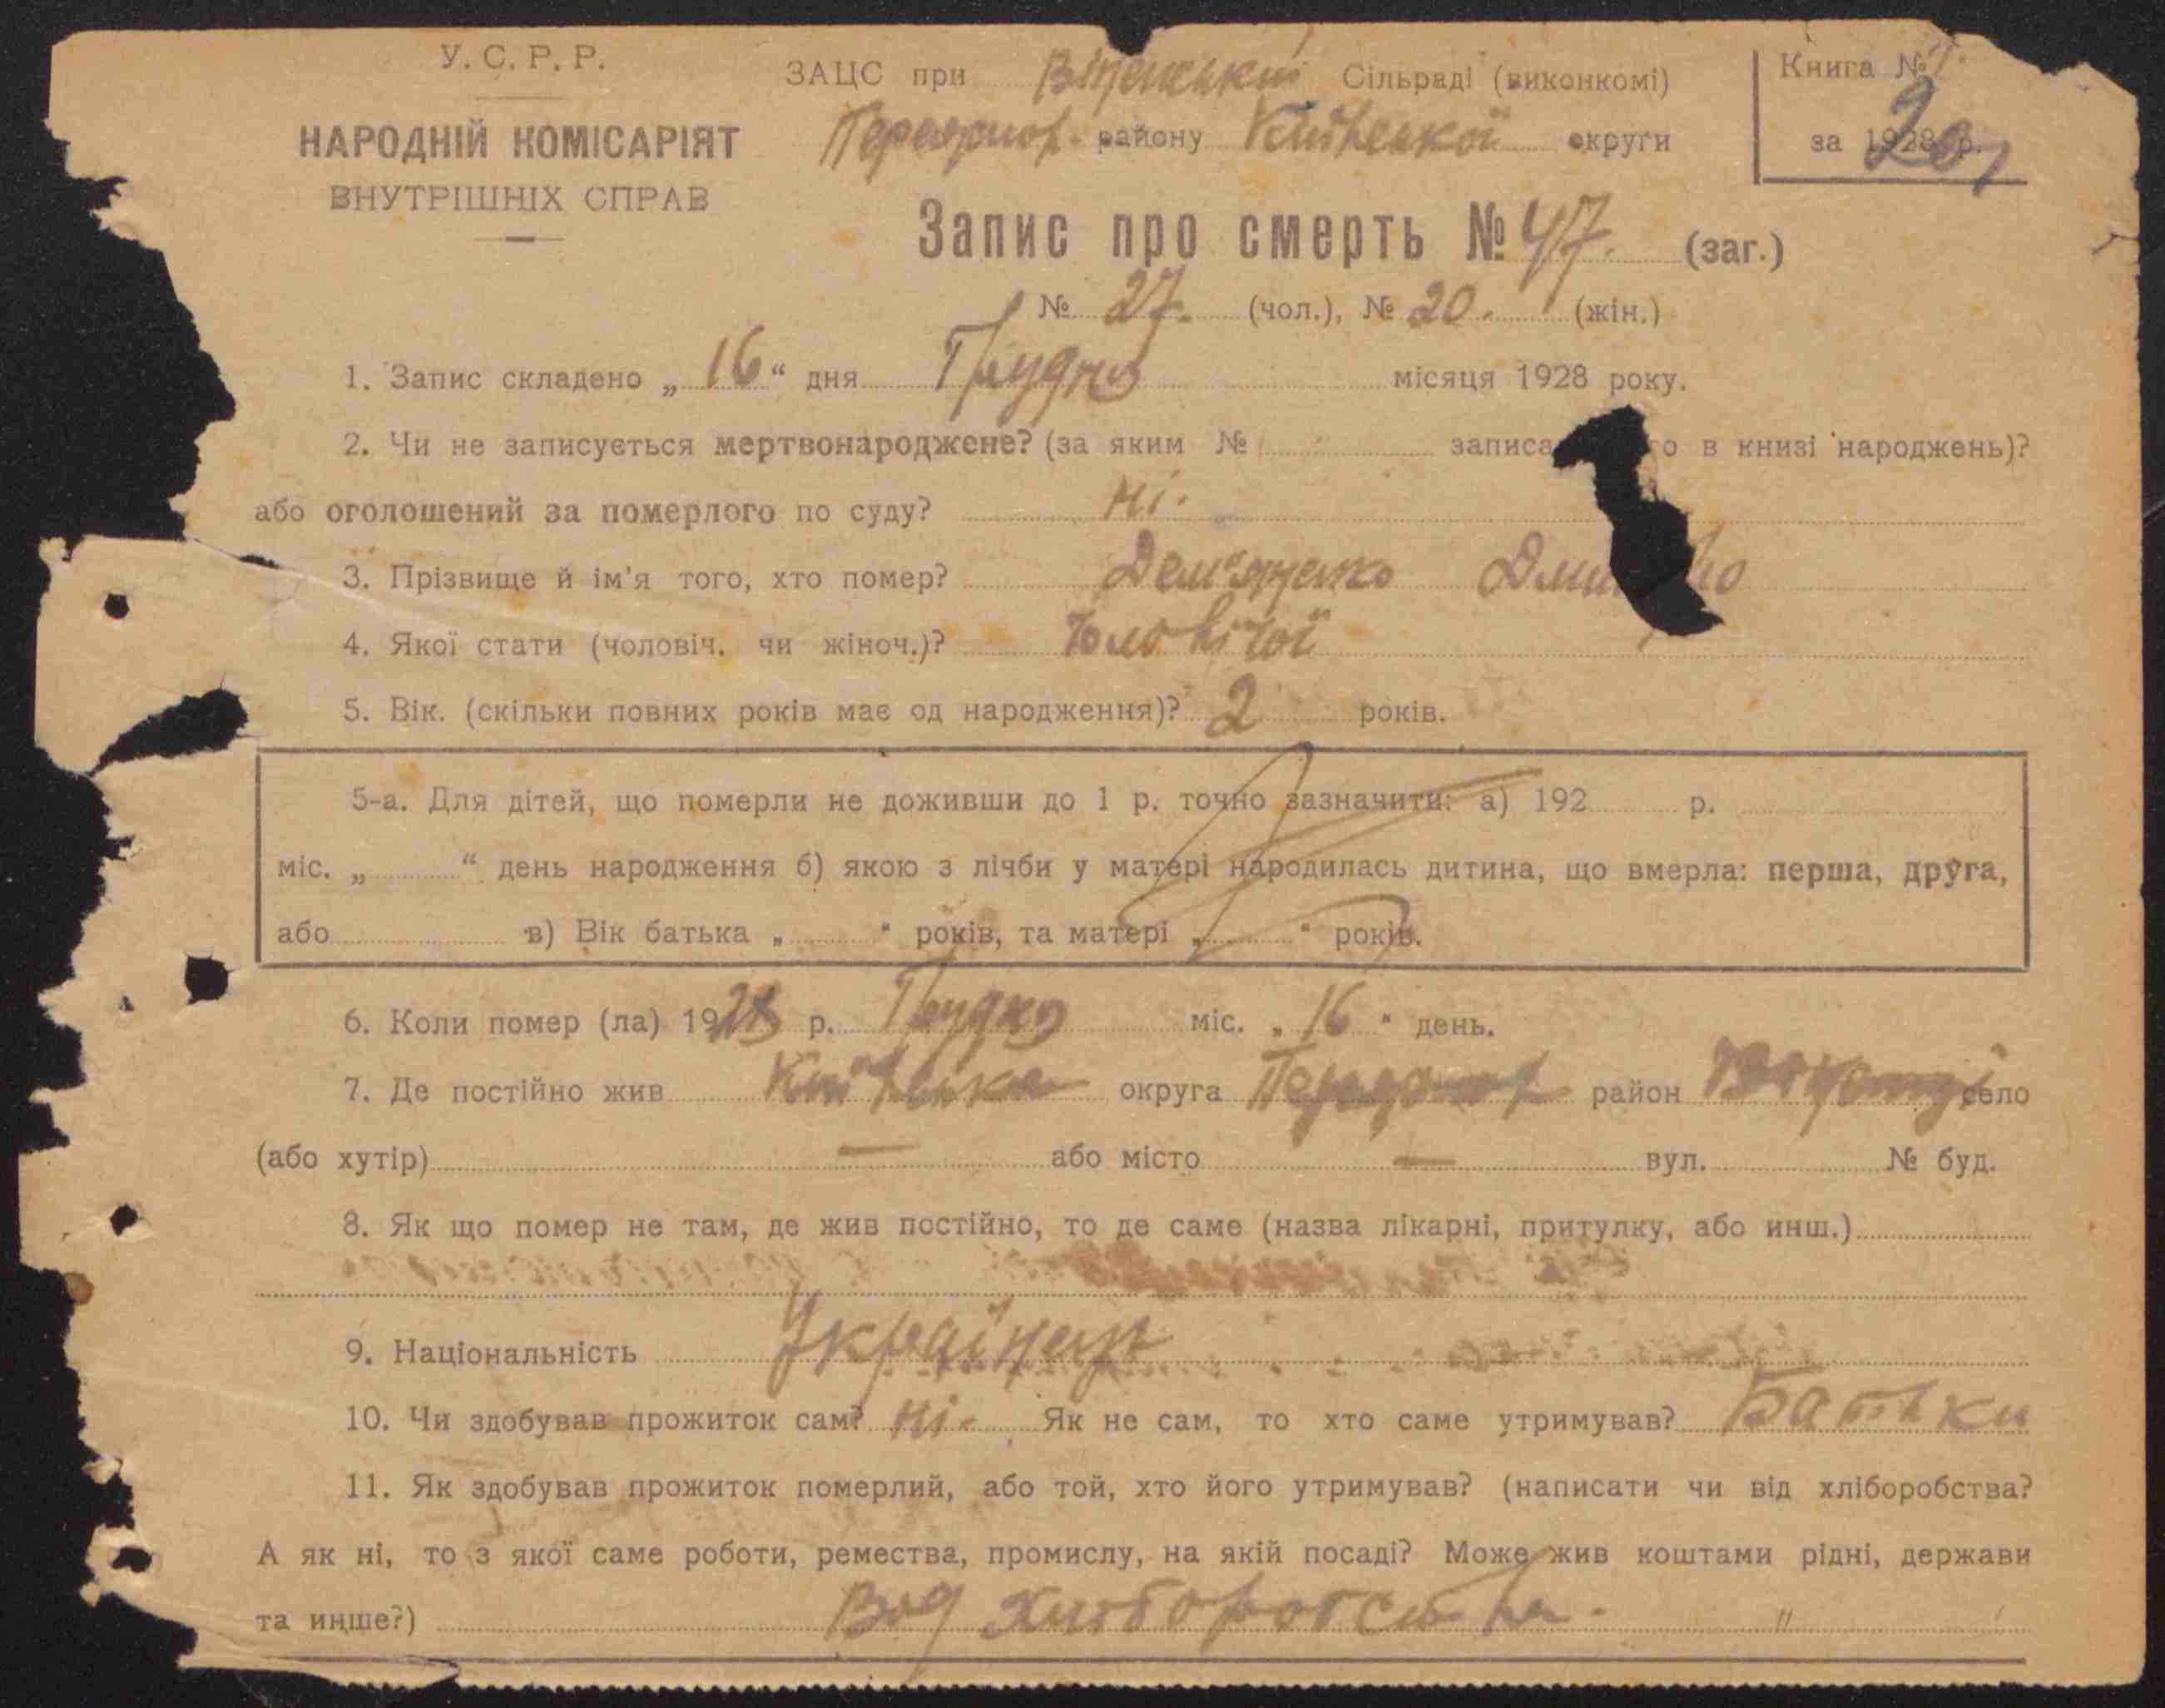 У. С. Р. Р.
НАРОДНІЙ КОМІСАРІЯТ
ВНУТРІШНІХ СПРАВ
ЗАЦС при Сільраді (виконкомі)
району Київської округи
Книга №
за 1928 р.
20,
Запис про смерть № 47. (заг.)
№ 27. (чол.), № 20. (жін.)
1. Запис складено „ 16 “ дня Грудня місяця 1928 року.
2. Чи не записується мертвонароджене? (за яким № записа о в книзі народжень)?
або оголошений за померлого по суду? ні.
3. Прізвище й ім'я того, хто помер? Дем'яненко Дми о
4. Якої стати (чоловіч. чи жіноч.)? Чоловічої
5. Вік. (скільки повних років має од народження)? 2 років.
5-а. Для дітей, що померли не доживши до 1 р. точно зазначити: а) 192 р.
міс. „ “ день народження б) якою з лічби у матері народилась дитина, що вмерла: перша, друга,
або в) Вік батька „ “ років, та матері „ “ років.
6. Коли помер (ла) 1928 р. Грудня міс. „ 16 “ день.
7. Де постійно жив Київська округа район село
(або хутір) — або місто — вул. № буд.
8. Як що помер не там, де жив постійно, то де саме (назва лікарні, притулку, або инш.)
9. Національність Українец
10. Чи здобував прожиток сам? ні. Як не сам, то хто саме утримував? Батьки
11. Як здобував прожиток померлий, або той, хто його утримував? (написати чи від хліборобства?
А як ні, то з якої саме роботи, ремества, промислу, на якій посаді? Може жив коштами рідні, держави
та инше?) Від хліборобства.